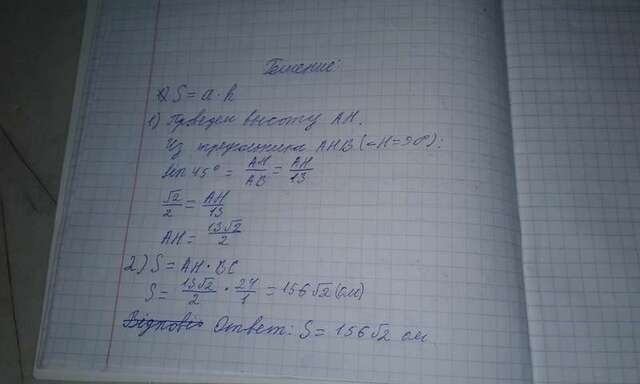 Решение:
S = a · h
1) Проведем высоту AH.
Из треугольника AHB (∠H=90°):
sin 45° = AH/AB = AH/13
√2/2 = AH/13
AH = 13√2/2
2) S = AH · BC
S = 13√2/2 · 24/1 = 156√2 (см)
Відповідь Ответ: S = 156√2 см